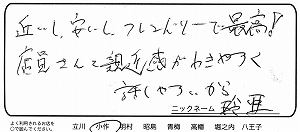 近いし、安いし、フレンドリーで最高!
店員さんて親近感がわきやすく
話しやすいから
ニックネーム 玲亜
よく利用されるお店を
○で囲んでください。
立川 小作 羽村 昭島 青梅 高幡 堀之内 八王子